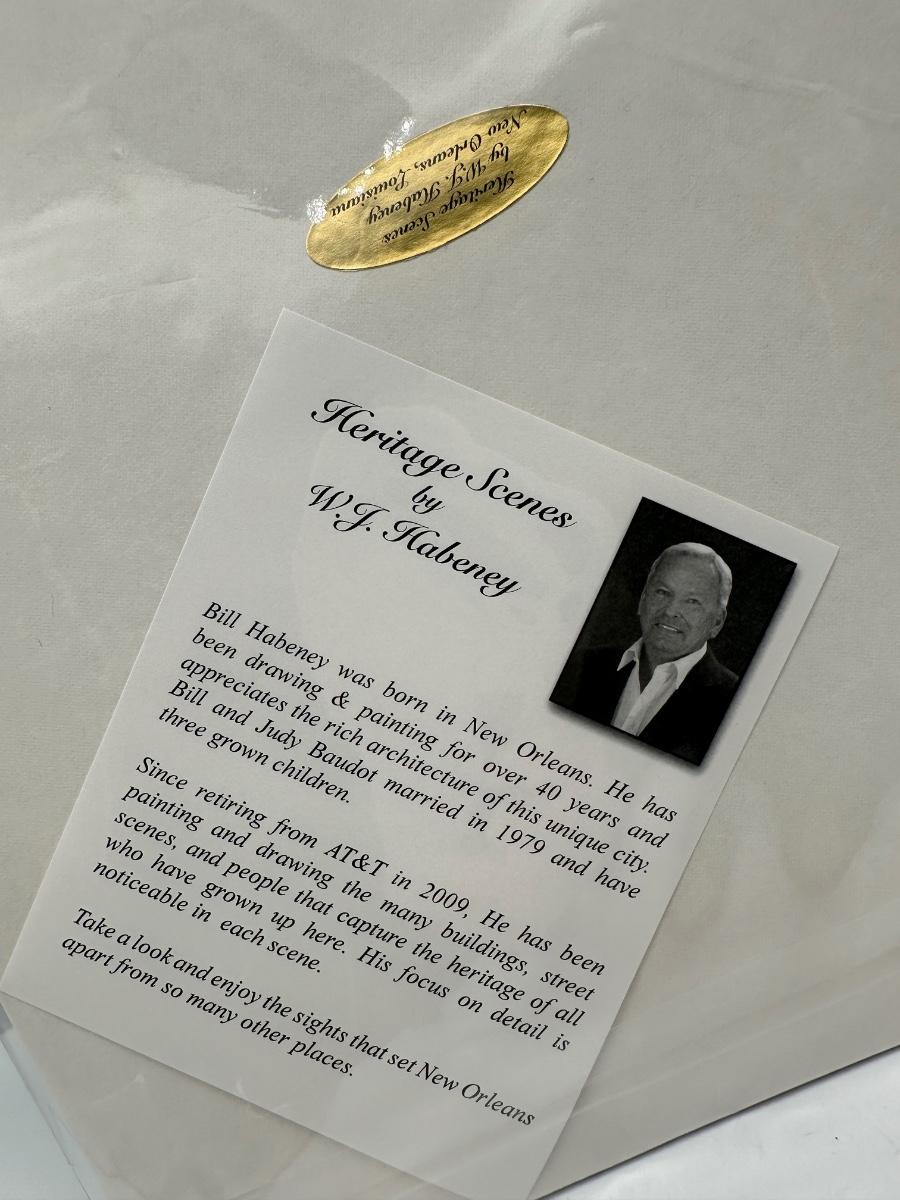 Heritage Scenes
by W.J. Habeney
New Orleans, Louisiana
Heritage Scenes
by
W.J. Habeney
Bill Habeney was born in New Orleans. He has
been drawing & painting for over 40 years and
appreciates the rich architecture of this unique city.
Bill and Judy Baudot married in 1979 and have
three grown children.
Since retiring from AT&T in 2009, He has been
painting and drawing the many buildings, street
scenes, and people that capture the heritage of all
who have grown up here. His focus on detail is
noticeable in each scene.
Take a look and enjoy the sights that set New Orleans
apart from so many other places.